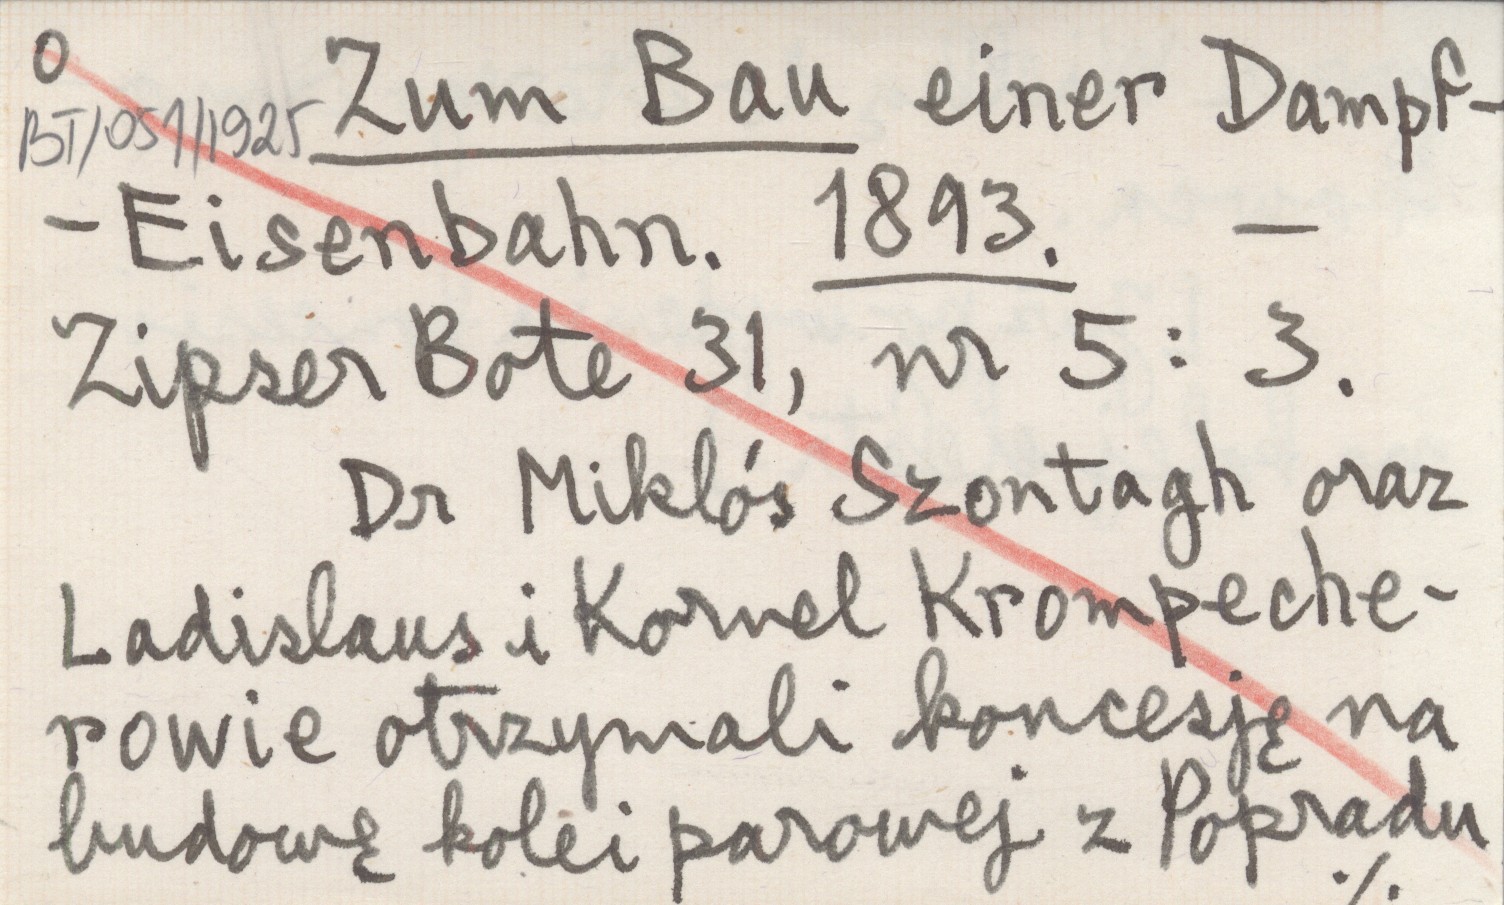 O
BT/051/1925 Zum Bau einer Dampf-
-Eisenbahn. 1893. —
Zipser Bote 31, nr 5: 3.
Dr Miklós Szontagh oraz
Ladislaus i Kornel Krompeche-
rowie otrzymali koncesję na
budowę kolei parowej z Popradu
./.